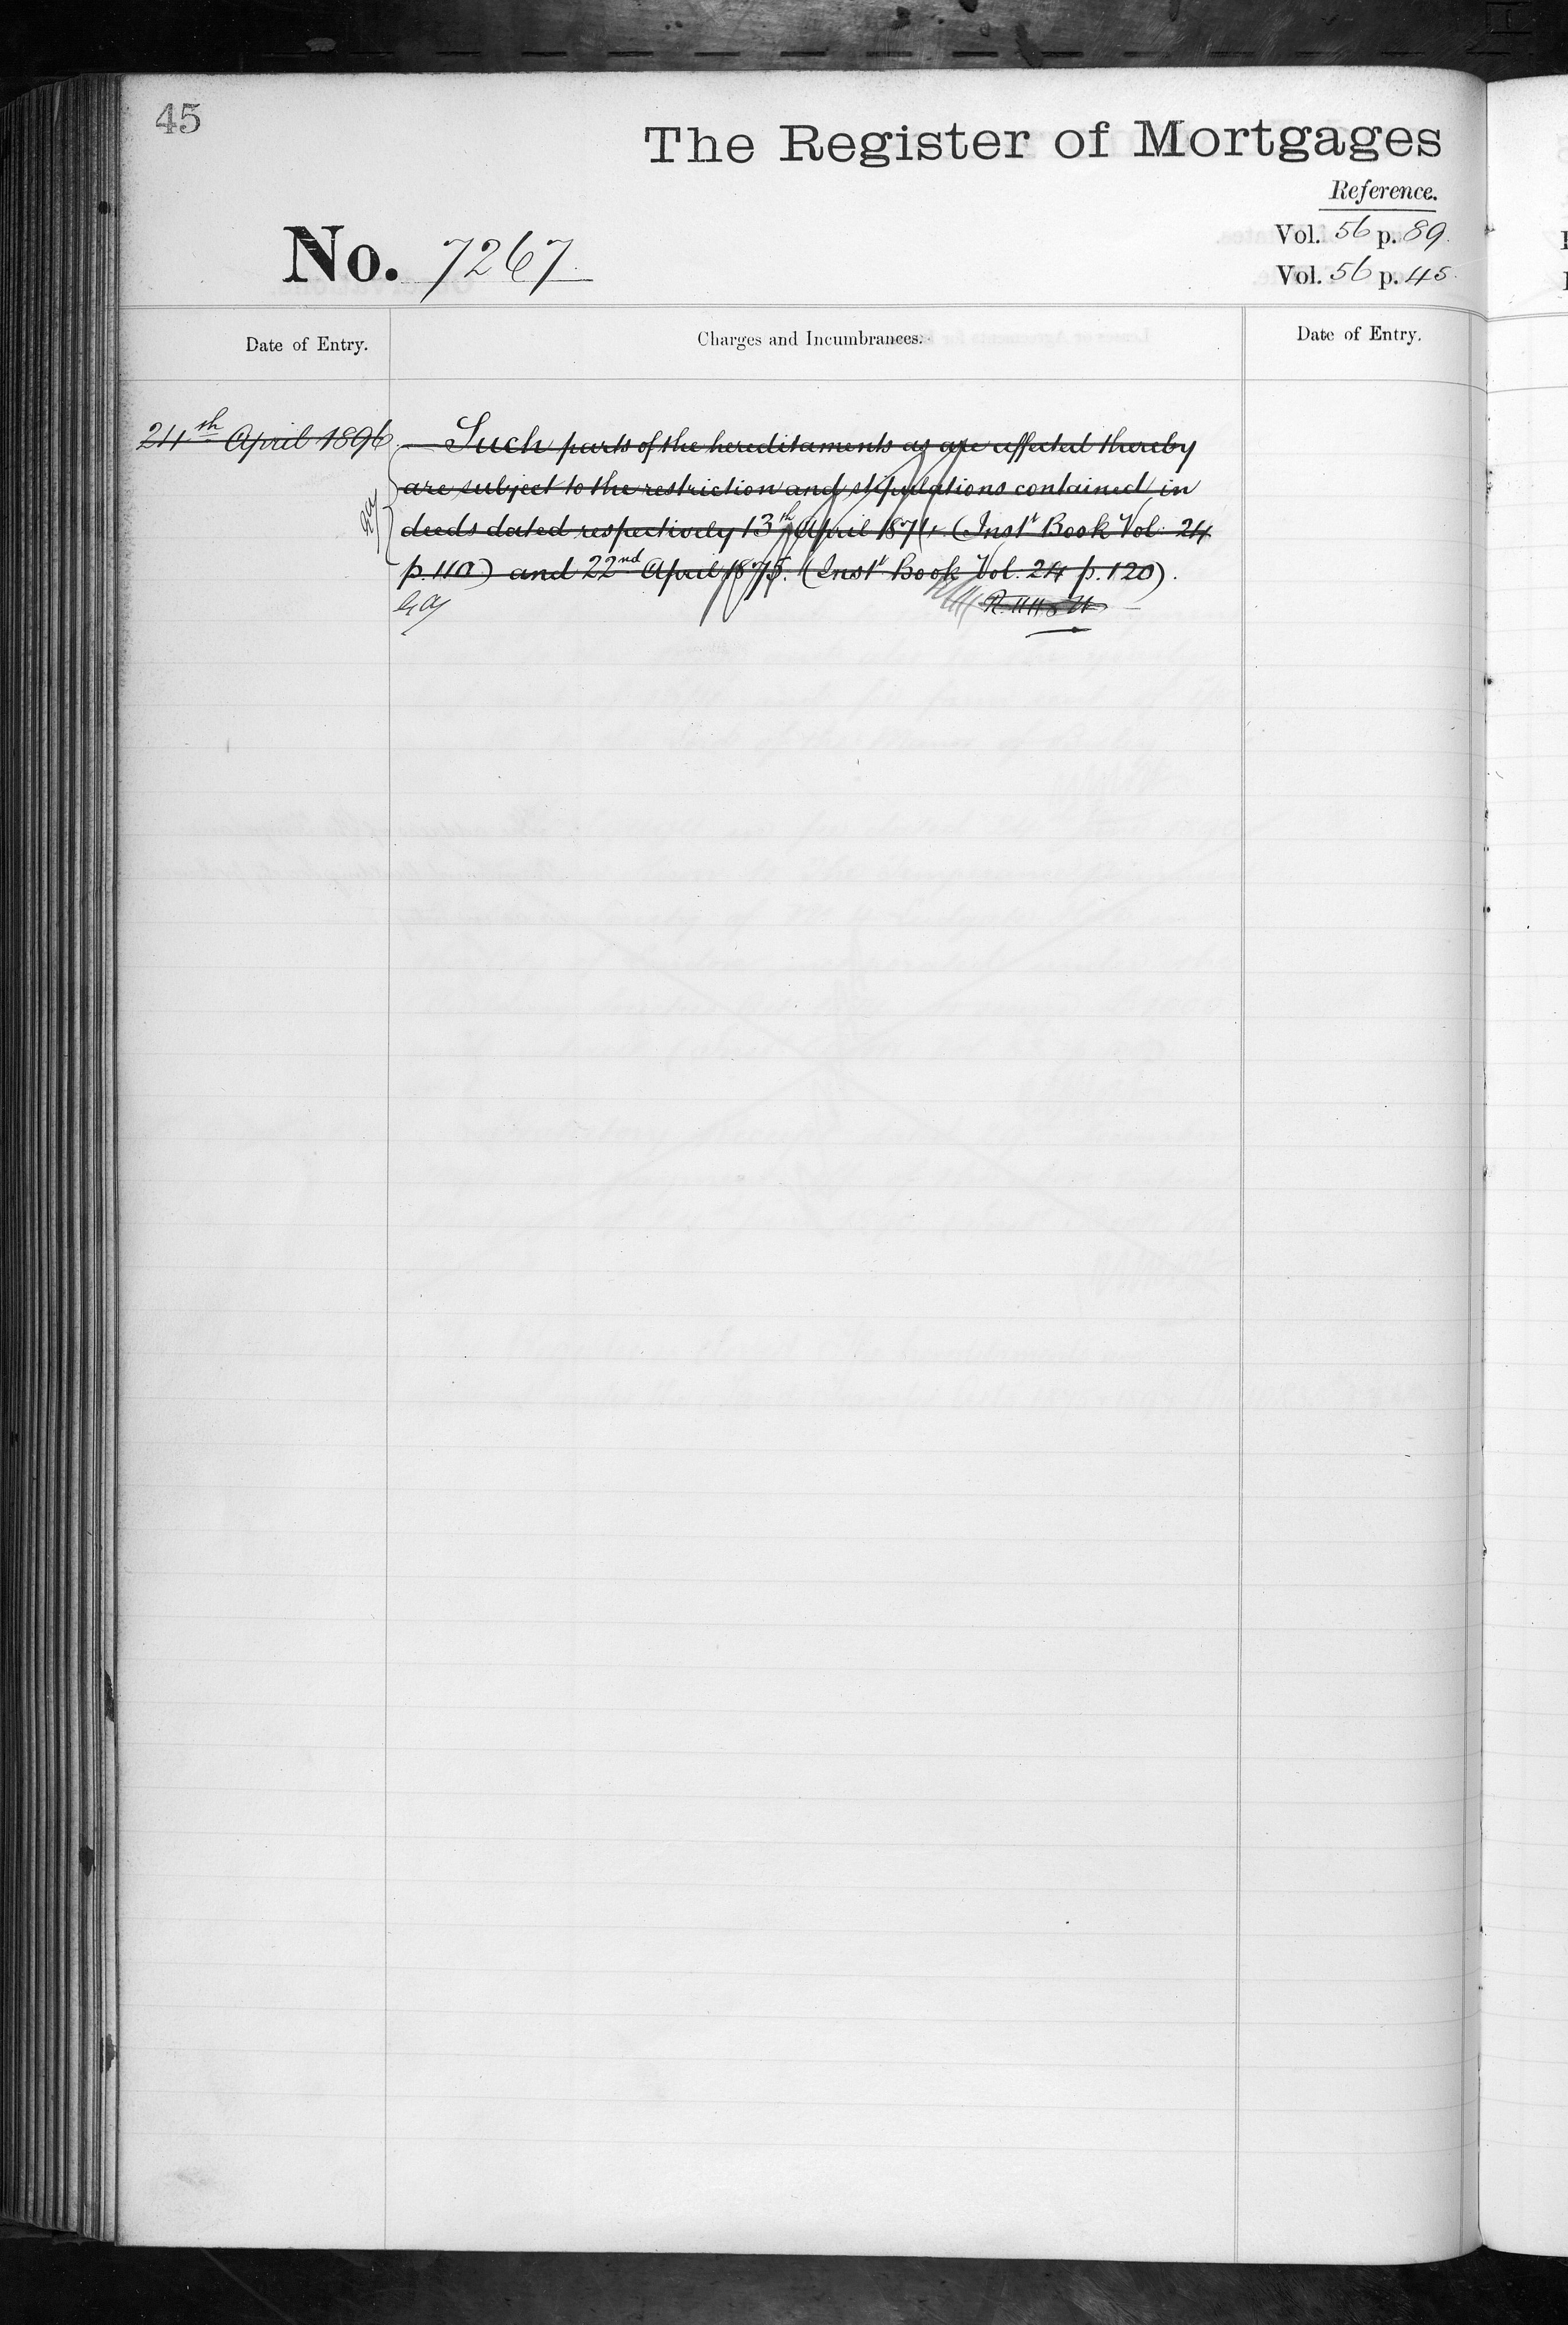 45
The Register of Mortgages
Reference.
Vol. 56 p. 89.
No. 7267.
Vol. 56 p. 45.
Date of Entry.
Charges and Incumbrances.
Date of Entry.
24th April 1896.
Such parts of the hereditaments as are affected thereby
are subject to the restriction and stipulations contained in
deeds dated respectively 13th April 1874. (Inst. Book Vol. 24
p. 110) and 22nd April 1875. (Inst. Book Vol. 24 p. 120).